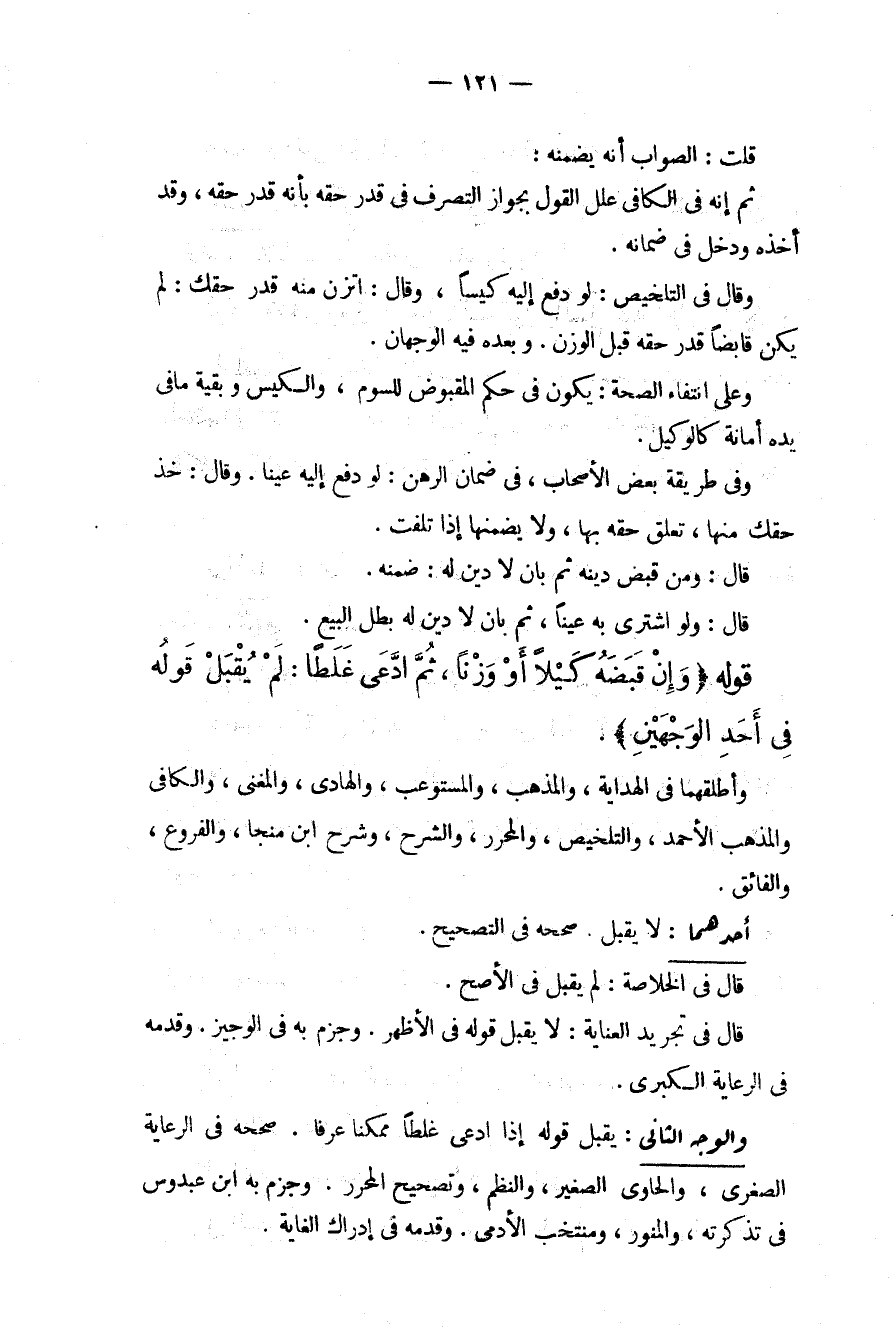 — ١٢١ —
قلت : الصواب أنه يضمنه :
ثم إنه فى الكافى علل القول بجواز التصرف فى قدر حقه بأنه قدر حقه ، وقد
أخذه ودخل فى ضمانه .
وقال فى التلخيص : لو دفع إليه كيساً ، وقال : اتزن منه قدر حقك : لم
يكن قابضاً قدر حقه قبل الوزن . وبعده فيه الوجهان .
وعلى انتفاء الصحة : يكون فى حكم المقبوض للسوم ، والكيس وبقية مافى
يده أمانة كالوكيل .
وفى طريقة بعض الأصحاب ، فى ضمان الرهن : لو دفع إليه عينا . وقال : خذ
حقك منها ، تعلق حقه بها ، ولا يضمنها إذا تلفت .
قال : ومن قبض دينه ثم بان لا دين له : ضمنه .
قال : ولو اشترى به عيناً ، ثم بان لا دين له بطل البيع .
قوله ﴿ وَإِنْ قَبَضَهُ كَيْلاً أَوْ وَزْنًا ، ثُمَّ ادَّعَى غَلَطًا : لَمْ يُقْبَلْ قَولُه
فِى أَحَدِ الوَجْهَيْنِ ﴾ .
وأطلقهما فى الهداية ، والمذهب ، والمستوعب ، والهادى ، والمغنى ، والكافى
والمذهب الأحمد ، والتلخيص ، والمحرر ، والشرح ، وشرح ابن منجا ، والفروع ،
والفائق .
أحدهما : لا يقبل . صححه فى التصحيح .
قال فى الخلاصة : لم يقبل فى الأصح .
قال فى تجريد العناية : لا يقبل قوله فى الأظهر . وجزم به فى الوجيز . وقدمه
فى الرعاية الكبرى .
والوجه الثانى : يقبل قوله إذا ادعى غلطاً ممكنا عرفا . صححه فى الرعاية
الصغرى ، والحاوى الصغير ، والنظم ، وتصحيح المحرر . وجزم به ابن عبدوس
فى تذكرته ، والمنور ، ومنتخب الأدمى . وقدمه فى إدراك الغاية .